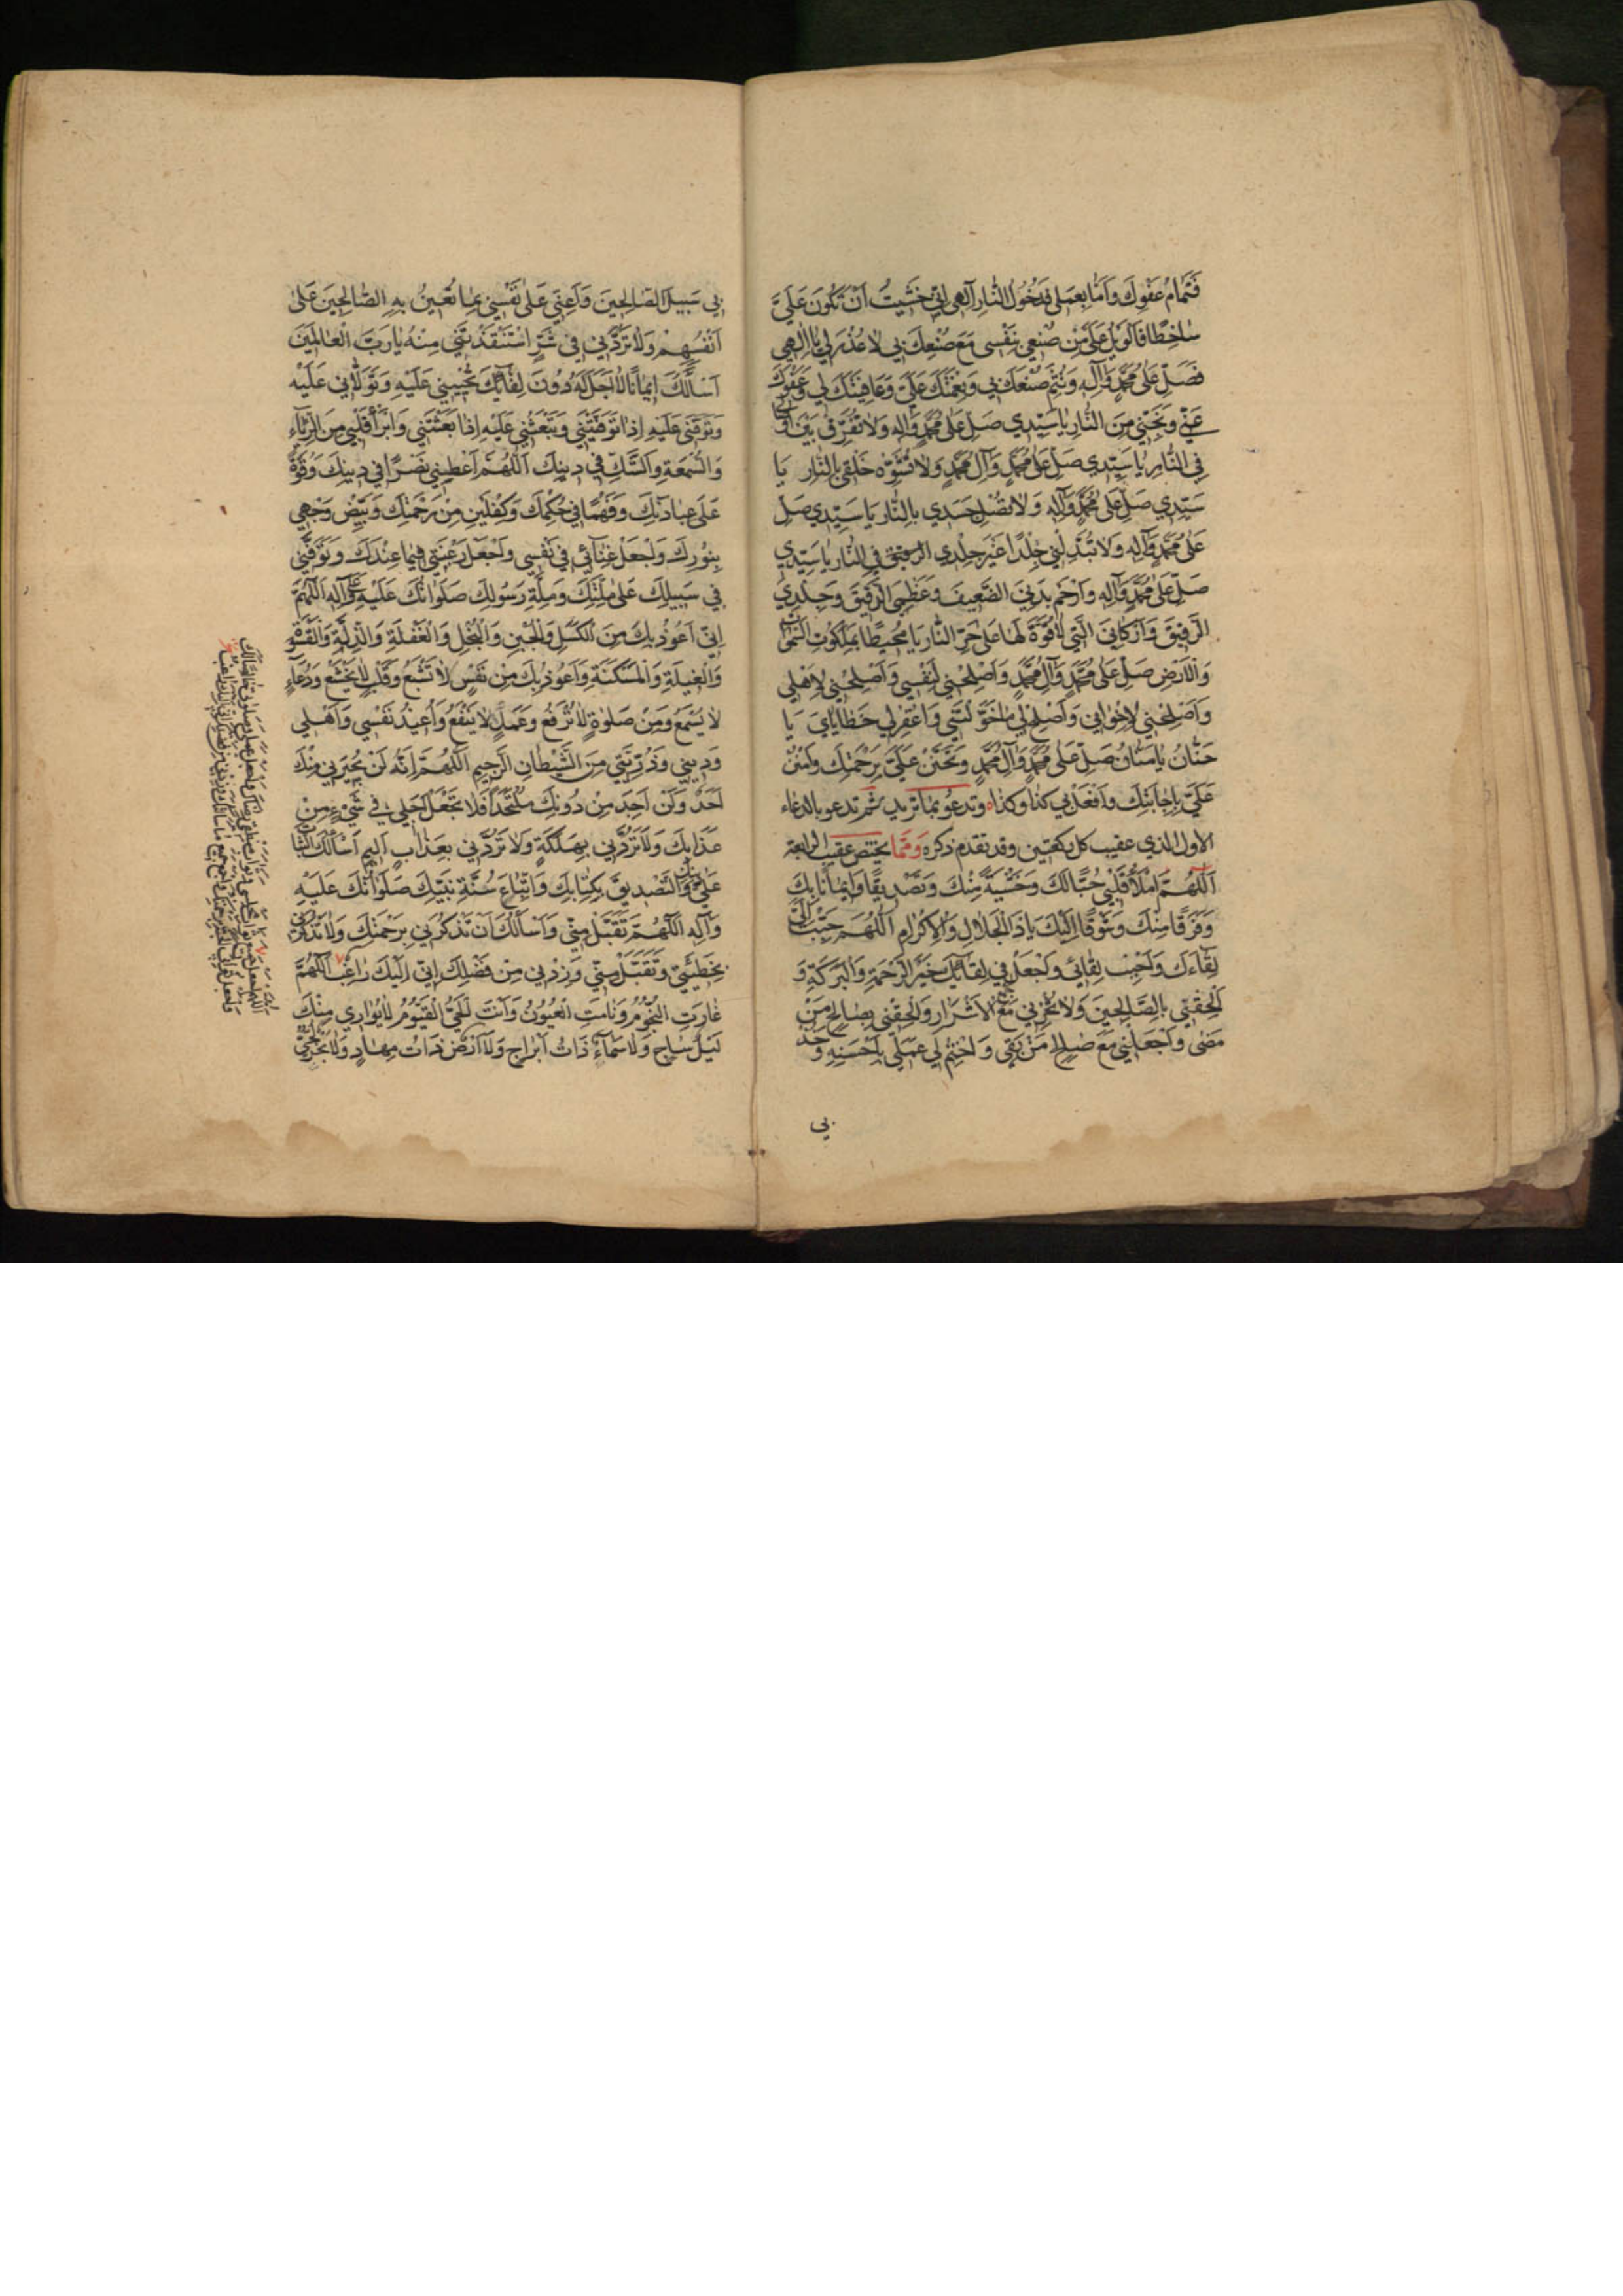 فَتَمَامُ عَفْوِكَ وَاَمَّا بِعَمَلِي فَدُخُولُ النَّارِ اِلٰهِي اِنِّي خَشِيتُ اَنْ تَكُونَ عَلَيَّ
سَاخِطًا فَالْوَيْلُ عَلَيَّ مِنْ صُنْعِي بِنَفْسِي مَعَ صُنْعِكَ بِي لَا عُذْرَ لِي يَا اِلٰهِي
فَصَلِّ عَلٰى مُحَمَّدٍ وَآلِهِ وَتَمِّمْ صُنْعَكَ بِي وَنِعْمَتَكَ عَلَيَّ وَعَافِيَتَكَ لِي وَعَفْوَكَ
عَنِّي وَنَجِّنِي مِنَ النَّارِ يَا سَيِّدِي صَلِّ عَلٰى مُحَمَّدٍ وَآلِهِ وَلَا تُفَرِّقْ بَيْنَ
فِي النَّارِ يَا سَيِّدِي صَلِّ عَلٰى مُحَمَّدٍ وَآلِ مُحَمَّدٍ وَلَا تُشَوِّهْ خَلْقِي بِالنَّارِ يَا
سَيِّدِي صَلِّ عَلٰى مُحَمَّدٍ وَآلِهِ وَلَا تُصْلِ جَسَدِي بِالنَّارِ يَا سَيِّدِي صَلِّ
عَلٰى مُحَمَّدٍ وَآلِهِ وَلَا تُبَدِّلْنِي جِلْدًا غَيْرَ جِلْدِي فِي النَّارِ يَا سَيِّدِي
صَلِّ عَلٰى مُحَمَّدٍ وَآلِهِ وَارْحَمْ بَدَنِيَ الضَّعِيفَ وَعَظْمِيَ الرَّقِيقَ وَجِلْدِيَ
الرَّقِيقَ وَاَرْكَانِيَ الَّتِي لَا قُوَّةَ لَهَا عَلٰى حَرِّ النَّارِ يَا مُحِيطًا بِمَلَكُوتِ السَّمٰوَاتِ
وَالْاَرْضِ صَلِّ عَلٰى مُحَمَّدٍ وَآلِ مُحَمَّدٍ وَاَصْلِحْنِي لِنَفْسِي وَاَصْلِحْنِي لِاَهْلِي
وَاَصْلِحْنِي لِاِخْوَانِي وَاَصْلِحْ لِي مَا خَوَّلْتَنِي وَاغْفِرْ لِي خَطَايَايَ يَا
حَنَّانُ يَا مَنَّانُ صَلِّ عَلٰى مُحَمَّدٍ وَآلِ مُحَمَّدٍ وَتَحَنَّنْ عَلَيَّ بِرَحْمَتِكَ وَامْنُنْ
عَلَيَّ بِاِجَابَتِكَ وَافْعَلْ بِي كَذَا وَكَذَا وتدعو بما تريد ثم تدعو بالدعاء
الاول الذي عقيب كل ركعتين وقد تقدم ذكره ومما يختص عقيب الرابعة
اَللّٰهُمَّ امْلَأْ قَلْبِي حُبًّا لَكَ وَخَشْيَةً مِنْكَ وَتَصْدِيقًا وَاِيمَانًا بِكَ
وَفَرَقًا مِنْكَ وَشَوْقًا اِلَيْكَ يَا ذَا الْجَلَالِ وَالْاِكْرَامِ اَللّٰهُمَّ حَبِّبْ اِلَيَّ
لِقَاءَكَ وَاَحْبِبْ لِقَائِي وَاجْعَلْ لِي فِي لِقَائِكَ خَيْرَ الرَّحْمَةِ وَالْبَرَكَةِ وَ
اَلْحِقْنِي بِالصَّالِحِينَ وَلَا تُخْزِنِي مَعَ الْاَشْرَارِ وَالْحِقْنِي بِصَالِحِ مَنْ
مَضٰى وَاجْعَلْنِي مَعَ صَالِحِ مَنْ بَقِيَ وَاخْتِمْ لِي عَمَلِي بِاَحْسَنِهِ وَخُذْ
بي
بِي سَبِيلَ الصَّالِحِينَ وَاَعِنِّي عَلٰى نَفْسِي بِمَا تُعِينُ بِهِ الصَّالِحِينَ عَلٰى
اَنْفُسِهِمْ وَلَا تَرُدَّنِي فِي شَرٍّ اسْتَنْقَذْتَنِي مِنْهُ يَا رَبَّ الْعَالَمِينَ
اَسْاَلُكَ اِيمَانًا لَا اَجَلَ لَهُ دُونَ لِقَائِكَ تُحْيِينِي عَلَيْهِ وَتَوَلَّانِي عَلَيْهِ
وَتَوَفَّنِي عَلَيْهِ اِذَا تَوَفَّيْتَنِي وَتَبْعَثُنِي عَلَيْهِ اِذَا بَعَثْتَنِي وَابْرَأْ قَلْبِي مِنَ الرِّيَاءِ
وَالسُّمْعَةِ وَالشَّكِّ فِي دِينِكَ اَللّٰهُمَّ اَعْطِنِي نَصْرًا فِي دِينِكَ وَقُوَّةً
عَلٰى عِبَادَتِكَ وَفَهْمًا فِي حُكْمِكَ وَكِفْلَيْنِ مِنْ رَحْمَتِكَ وَبَيِّضْ وَجْهِي
بِنُورِكَ وَاجْعَلْ غَنَائِي فِي نَفْسِي وَاجْعَلْ رَغْبَتِي فِيمَا عِنْدَكَ وَتَوَفَّنِي
فِي سَبِيلِكَ عَلٰى مِلَّتِكَ وَمِلَّةِ رَسُولِكَ صَلَوَاتُكَ عَلَيْهِ وَعَلٰى آلِهِ اَللّٰهُمَّ
اِنِّي اَعُوذُ بِكَ مِنَ الْكَسَلِ وَالْجُبْنِ وَالْبُخْلِ وَالْغَفْلَةِ وَالذِّلَّةِ وَالْقَسْوَةِ
وَالْعَيْلَةِ وَالْمَسْكَنَةِ وَاَعُوذُ بِكَ مِنْ نَفْسٍ لَا تَشْبَعُ وَقَلْبٍ لَا يَخْشَعُ وَدُعَاءٍ
لَا يُسْمَعُ وَمِنْ صَلٰوةٍ لَا تُرْفَعُ وَعَمَلٍ لَا يَنْفَعُ وَاُعِيذُ نَفْسِي وَاَهْلِي
وَدِينِي وَذُرِّيَّتِي مِنَ الشَّيْطَانِ الرَّجِيمِ اَللّٰهُمَّ اِنَّهُ لَنْ يُجِيرَنِي مِنْكَ
اَحَدٌ وَلَنْ اَجِدَ مِنْ دُونِكَ مُلْتَحَدًا فَلَا تَجْعَلْ اَجَلِي فِي شَيْءٍ مِنْ
عَذَابِكَ وَلَا تَرُدَّنِي بِهَلَكَةٍ وَلَا تَرُدَّنِي بِعَذَابٍ اَلِيمٍ اَسْاَلُكَ الثَّبَاتَ
عَلٰى دِينِكَ وَالتَّصْدِيقَ بِكِتَابِكَ وَاتِّبَاعَ سُنَّةِ نَبِيِّكَ صَلَوَاتُكَ عَلَيْهِ
وَآلِهِ اَللّٰهُمَّ تَقَبَّلْ مِنِّي وَاَسْاَلُكَ اَنْ تَذْكُرَنِي بِرَحْمَتِكَ وَلَا تَذْكُرَنِي
بِخَطِيئَتِي وَتَقَبَّلْ مِنِّي وَزِدْنِي مِنْ فَضْلِكَ اِنِّي اِلَيْكَ رَاغِبٌ اَللّٰهُمَّ
غَارَتِ النُّجُومُ وَنَامَتِ الْعُيُونُ وَاَنْتَ الْحَيُّ الْقَيُّومُ لَا يُوَارِي مِنْكَ
لَيْلٌ سَاجٍ وَلَا سَمَاءٌ ذَاتُ اَبْرَاجٍ وَلَا اَرْضٌ ذَاتُ مِهَادٍ وَلَا بَحْرٌ لُجِّيٌّ